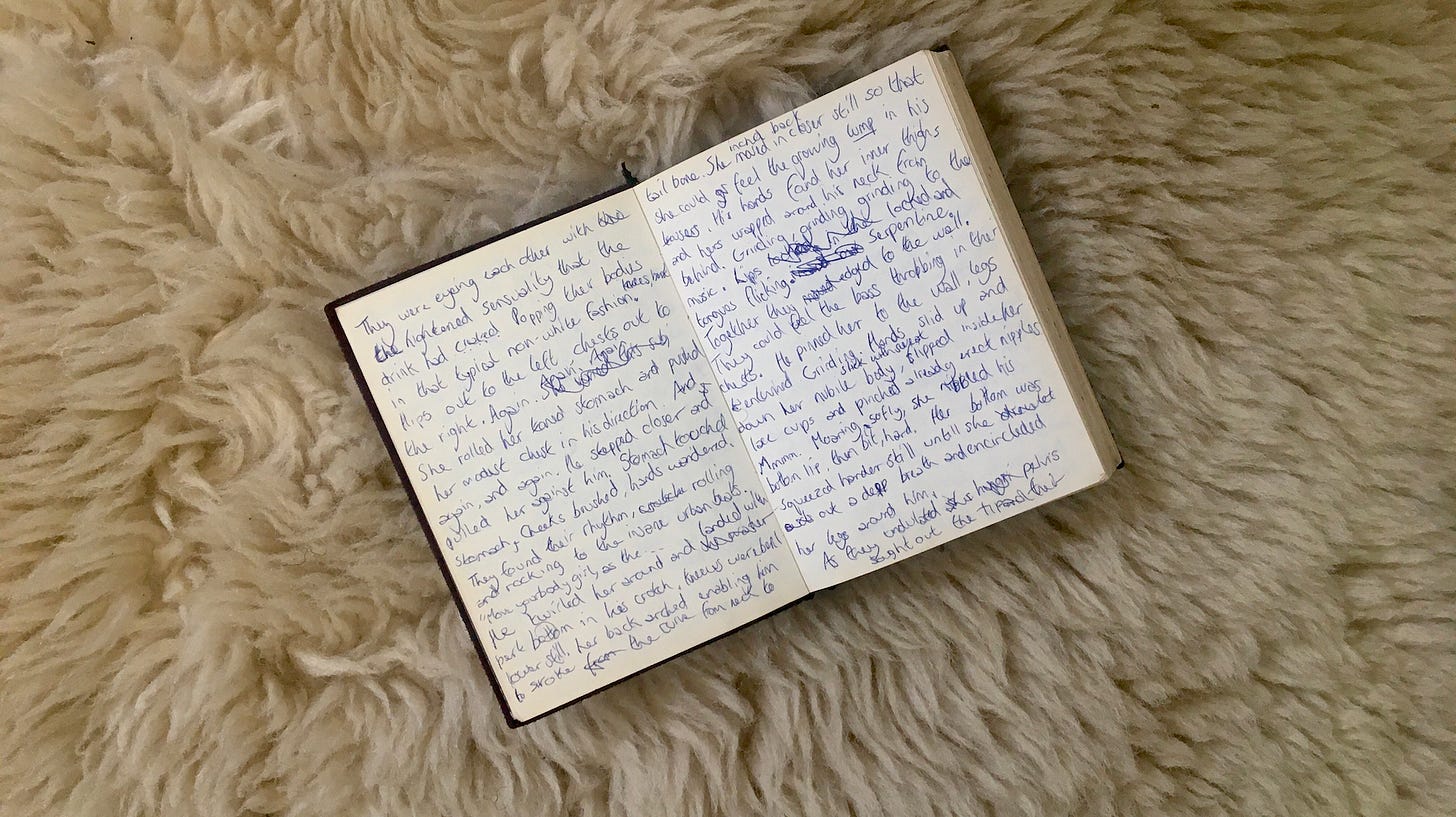 They were eyeing each other with
the hightened sensuality that the
drink had Popping their bodies
in that typical non-white fashion. knees, bent
Hips out to the left chests out to
the right. Again. Again.
She rolled her toned stomach and pushed
her modest chest in his direction. And
again, and again. He stepped closer and
pulled her against him. Stomach touched
stomach, cheeks brushed, hands wandered.
They found their rhythm, rolling
and rocking to the insane urban beats.
"Move your body girl, as the...
He twirled her around and landed with
perk bottom in his crotch. Knees were bent
lower still, her back arched enabling him
to stroke from the curve from neck to
tail bone. She inched back
moved in closer still so that
she could feel the growing lump in his
trousers. His hands found her inner thighs
and hers wrapped around his neck from
behind. Grinding grinding grinding to the
music. Lips locked and
tongues flicking. Serpentine.
Together they edged to the wall.
They could feel the bass throbbing in their
chests. He pinned her to the wall, legs
entwined. Grinding. Hands slid up and
down her nubile body, slipped inside her
lace cups and pinched already erect nipples
Mmmm. Moaning softly, she his
bottom lip, then bit, hard. Her bottom was
squeezed harder still until she
out a deep breath and encircled
her legs around him.
As they undulated pelvis
sought out the that